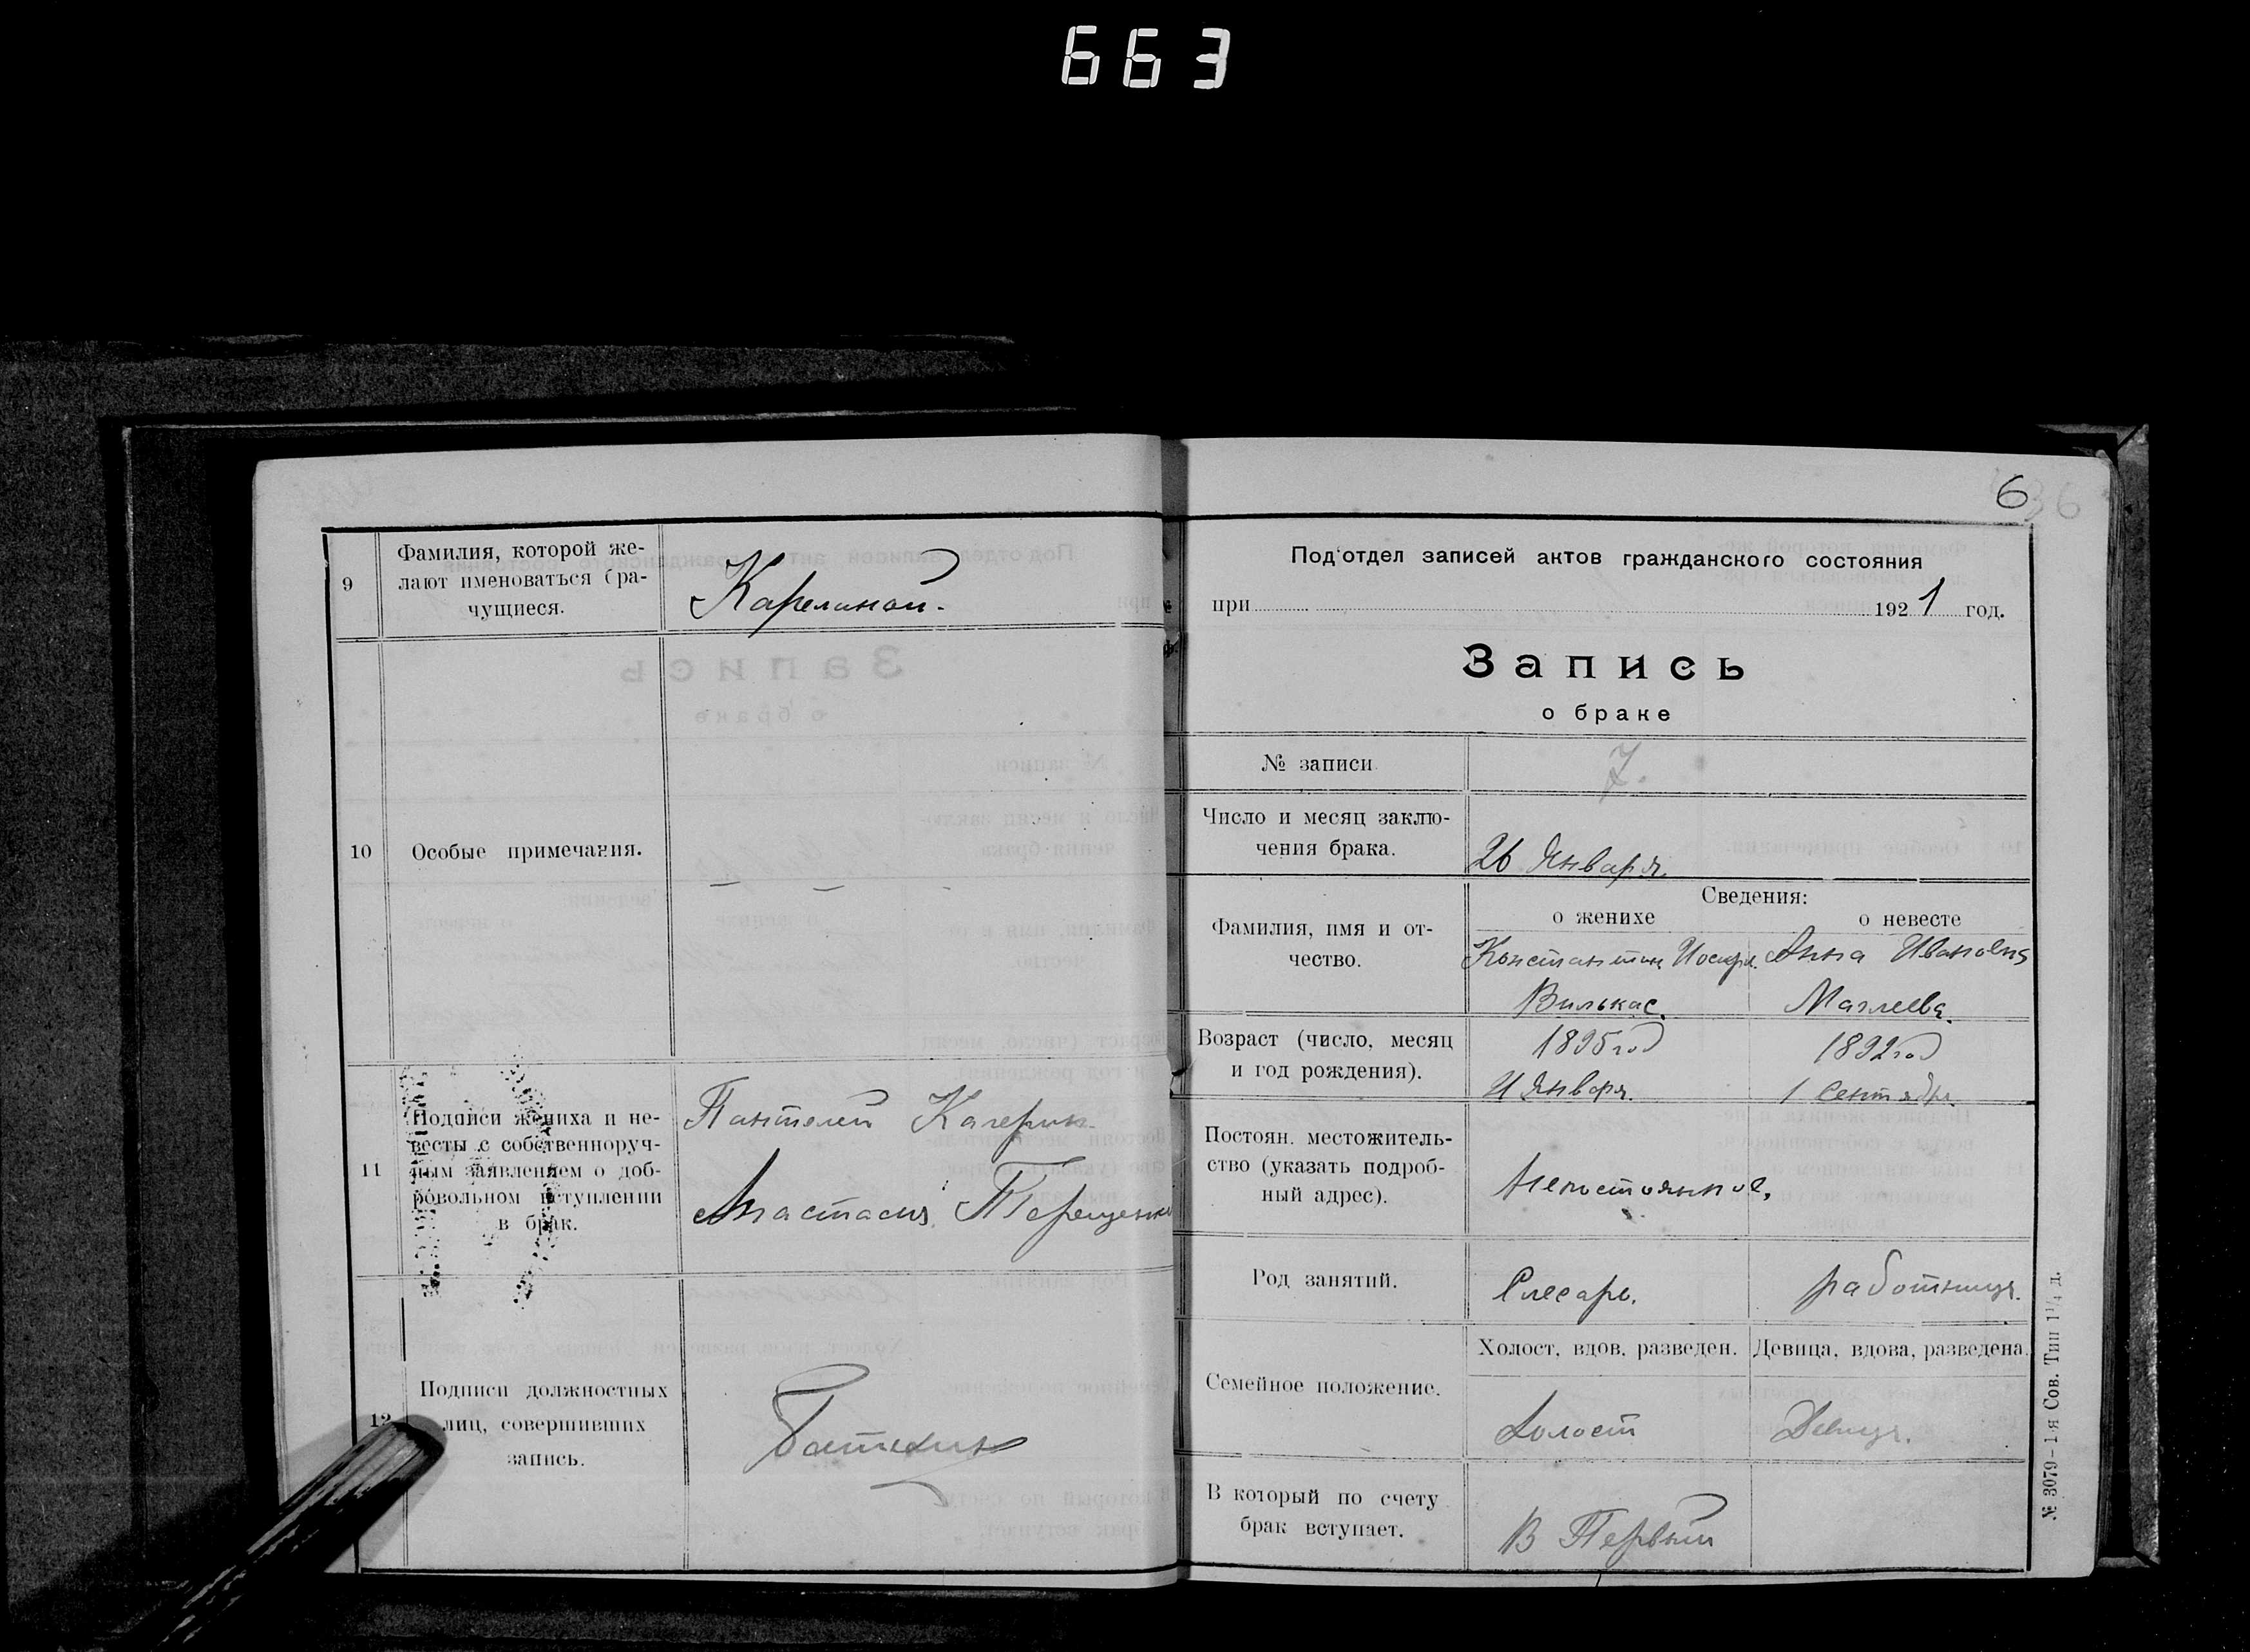 663
9
Фамилия, которой же-
лают именоваться бра-
чущиеся.
Карелиной.
10
Особые примечания.
— —
11
Подписи жениха и не-
весты с собственноруч-
ным заявлением о доб-
ровольном вступлении
в брак.
Пантелей
Анастасия Терещенко
12
Подписи должностных
лиц, совершивших
запись.
6
36
Под'отдел записей актов гражданского состояния
при 1921 год.
Запись
о браке
№ записи
7.
Число и месяц заклю-
чения брака.
26 Января.
Сведения:
о женихе о невесте
Фамилия, имя и от-
чество.
Константин Иосиф. Анна Ивановна
Вилькас.
Возраст (число, месяц
и год рождения).
1895 год 1892 год
Января. 1 Сентября.
Постоян. местожитель-
ство (указать подроб-
ный адрес).
Непостоянное,
Род занятий.
Слесарь. работница.
Семейное положение.
Холост, вдов, разведен. Девица, вдова, разведена.
Холост Девица.
В который по счету
брак вступает.
В Первый
№ 3079—1-я Сов. Тип 1¹/₄ д.